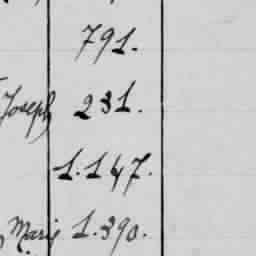 791.
Joseph 231.
1.147.
Marie 1.390.